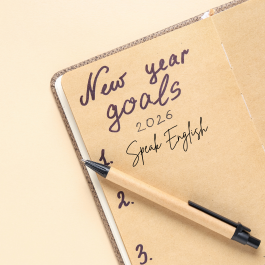 New year
goals
2026
1. Speak English
2.
3.